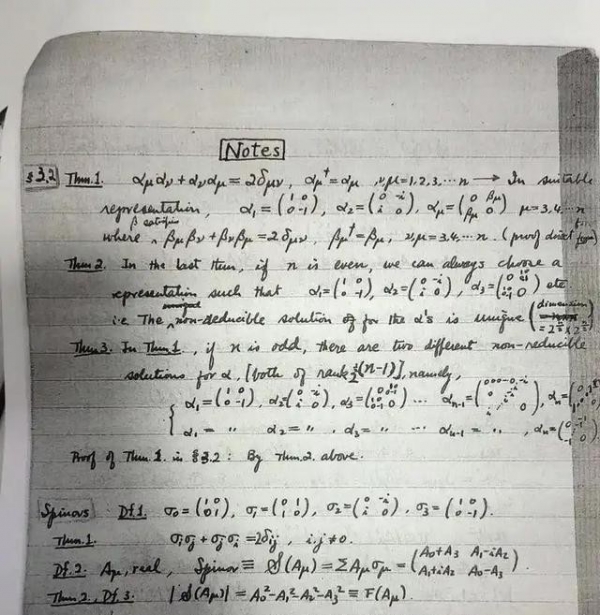 Notes
§3.2 Thm.1. αμαν + αναμ = 2δμν, αμ† = αμ, ν,μ = 1,2,3,...n → In suitable
representation, α₁ = (1 0; 0 -1), α₂ = (0 -i; i 0), αμ = (0 βμ; βμ 0) μ=3,4,...n
β satisfies
where βμβν + βνβμ = 2δμν, βμ† = βμ, ν,μ = 3,4,...n. (proof direct from)
Thm 2. In the last thm, if n is even, we can always choose a
representation such that α₁ = (1 0; 0 -1), α₂ = (0 -i; i 0), α₃ = etc
i.e. The non-deducible solution of for the α's is unique (dimension
Thm 3. In Thm 1, if n is odd, there are two different non-reducible
solutions for α, [both of rank ½(n-1)], namely,
α₁ = (1 0; 0 -1), α₂ = (0 -i; i 0), α₃ = ... αn-1 = , αn =
α₁ = " α₂ = " , α₃ = " ... αn-1 = " , αn =
Proof of Thm. 1. in §3.2 : By Thm.2. above.
Spinors Df.1. σ₀ = (1 0; 0 1), σ₁ = (0 1; 1 0), σ₂ = (0 -i; i 0), σ₃ = (1 0; 0 -1).
Thm.1. σiσj + σjσi = 2δij, i,j ≠ 0.
Df.2. Aμ, real, Spinor ≡ S(Aμ) = ΣAμσμ = (A₀+A₃ A₁-iA₂; A₁+iA₂ A₀-A₃)
Thm 2, Df. 3. |S(Aμ)| = A₀²-A₁²-A₂²-A₃² ≡ F(Aμ).